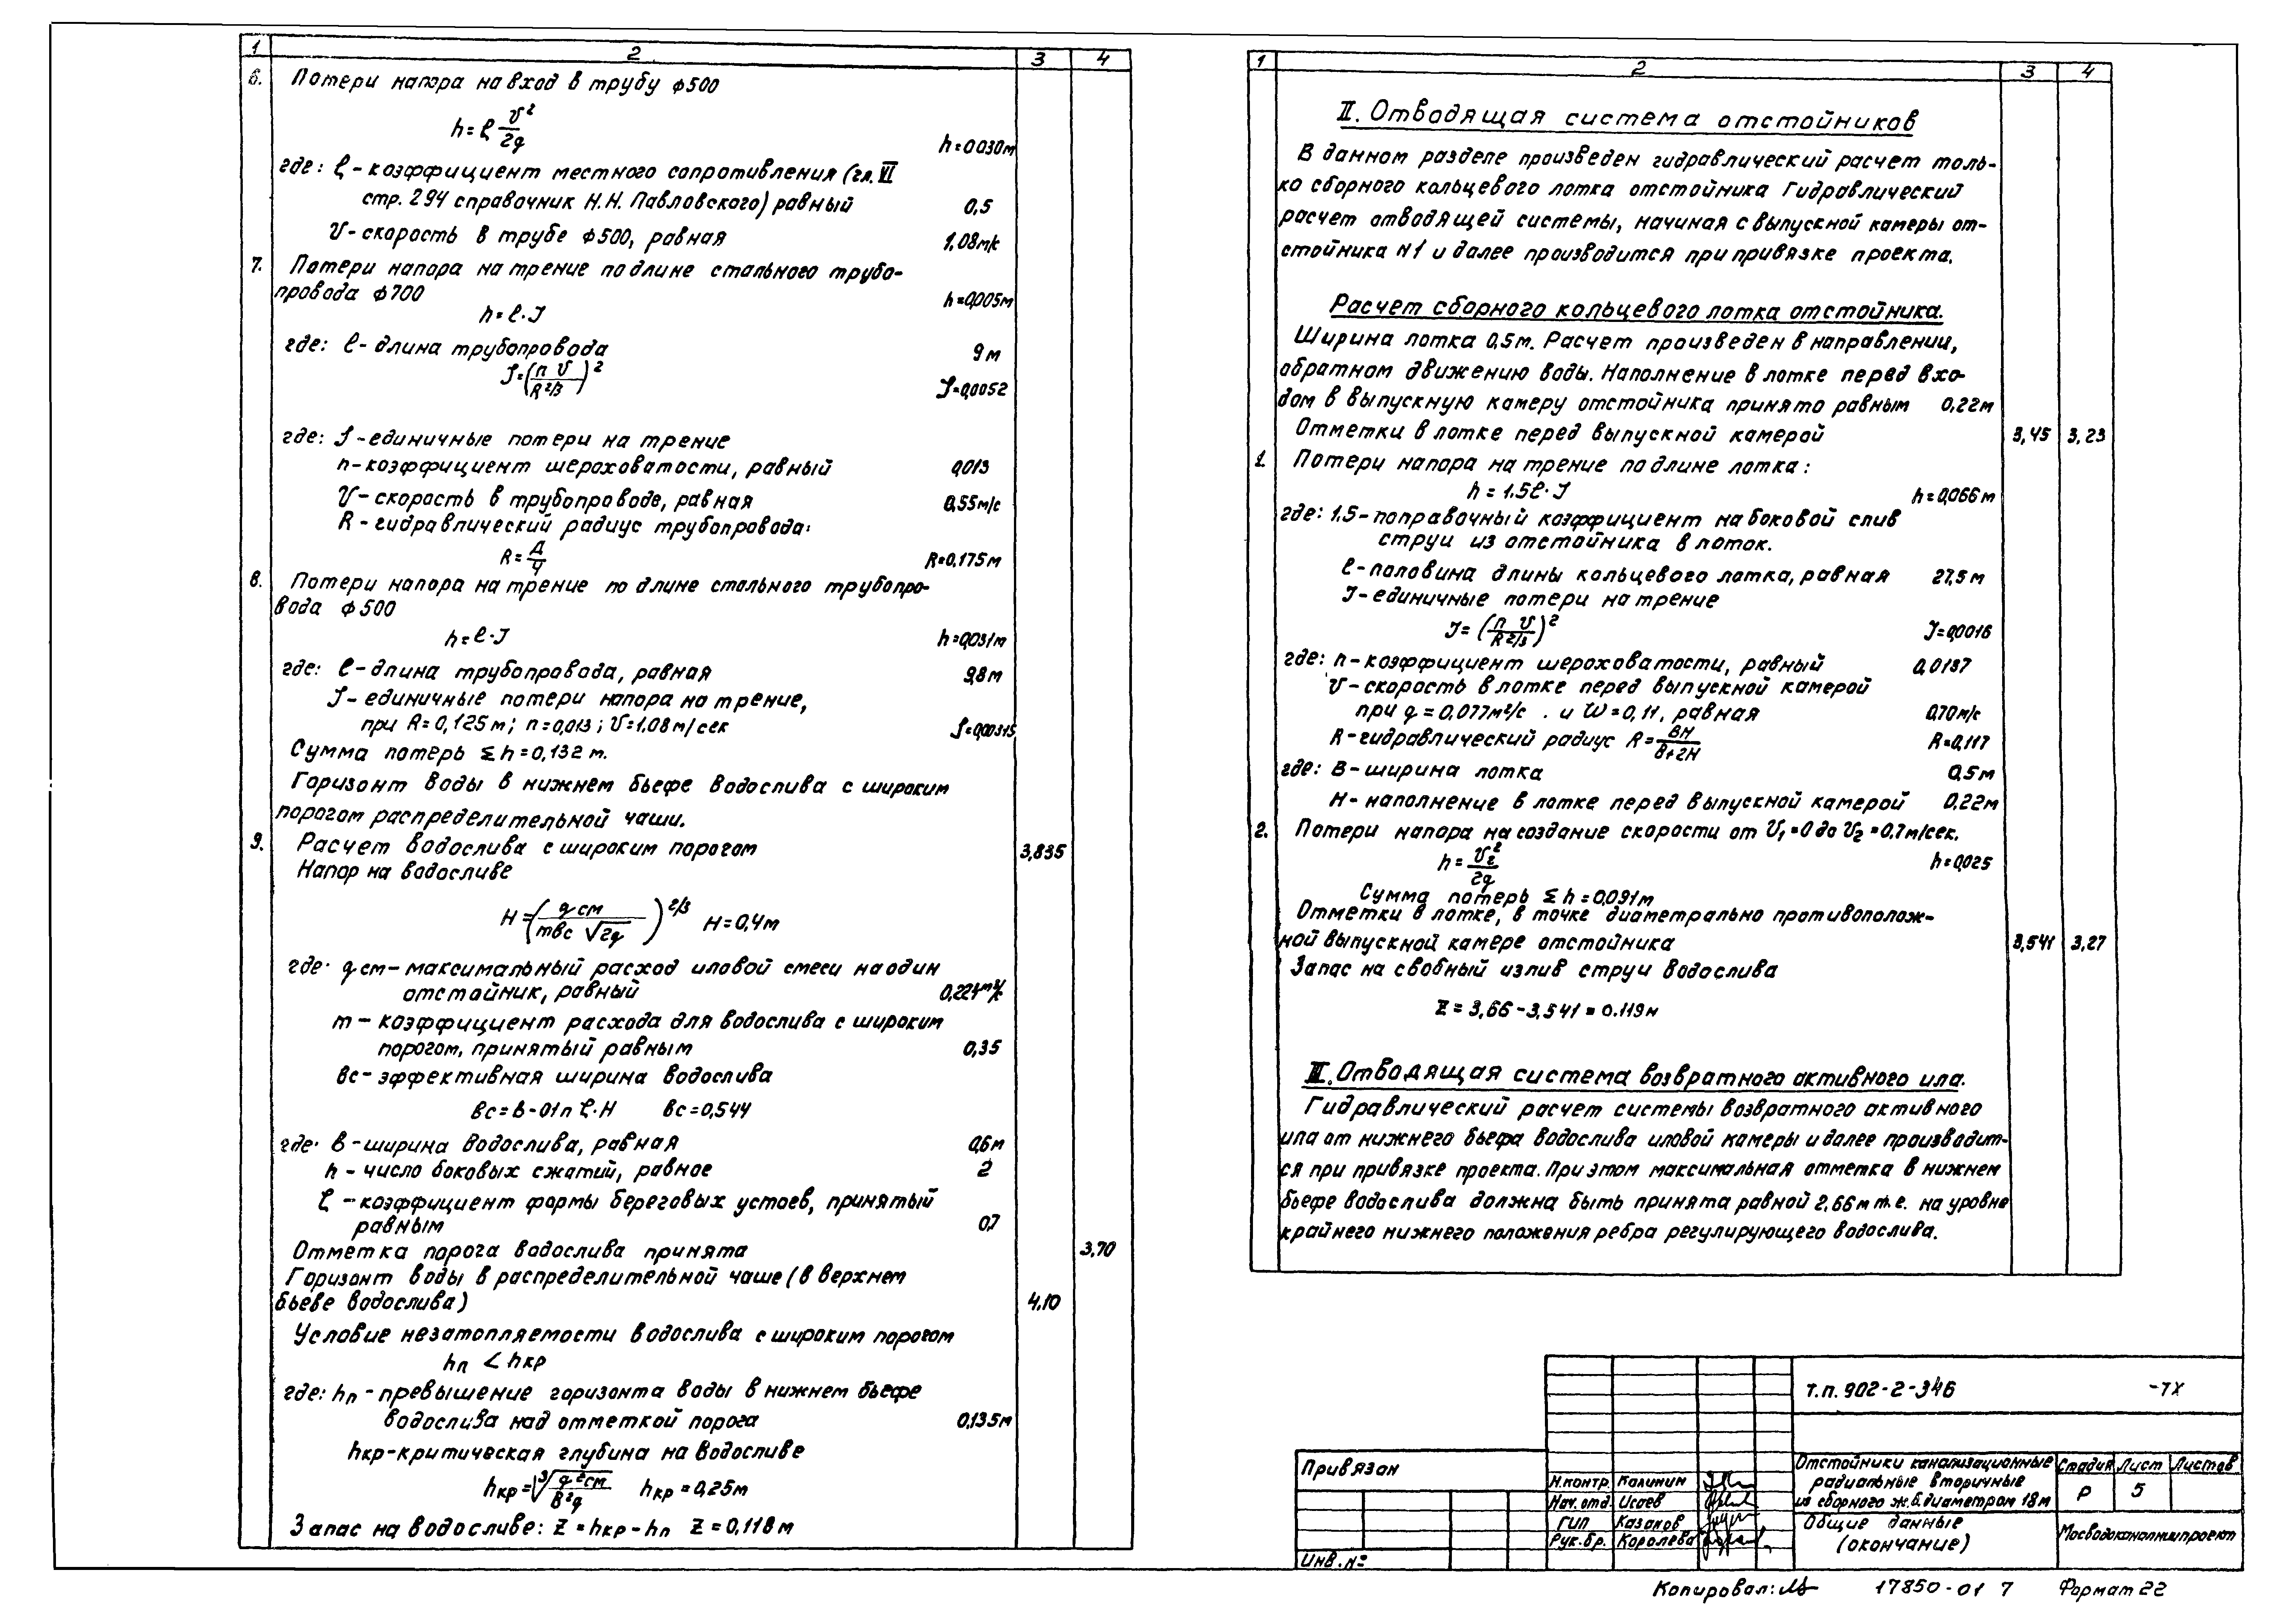 1 2 3 4
6. Потери напора на вход в трубу ф500
h=ξ v²/2g h=0030м
где: ξ-коэффициент местного сопротивления (гл. VI
стр. 294 справочник Н.Н. Павловского) равный 0,5
V-скорость в трубе ф500, равная 1,08м/с
7. Потери напора на трение по длине стального трубо-
провода ф700 h=0,005м
h=ℓ·J
где: ℓ-длина трубопровода 9м
J=(n v/R^2/3)² J=0,0052
где: J-единичные потери на трение
n-коэффициент шероховатости, равный 0,013
V-скорость в трубопроводе, равная 0,55м/с
R-гидравлический радиус трубопровода:
R=Д/4 R=0,175м
8. Потери напора на трение по длине стального трубопро-
вода ф500
h=ℓ·J h=0,031м
где: ℓ-длина трубопровода, равная 9,8м
J-единичные потери напора на трение,
при R=0,125м; n=0,013; V=1.08м/сек J=0,00315
Сумма потерь Σh=0,132м.
Горизонт воды в нижнем бьефе водослива с широким
порогом распределительной чаши.
9. Расчет водослива с широким порогом 3,835
Напор на водосливе
H=(qсм/mвс √2g)^2/3 H=0,4м
где: qсм-максимальный расход иловой смеси на один
отстойник, равный 0,224м³/с
m-коэффициент расхода для водослива с широким
порогом, принятый равным 0,35
вс-эффективная ширина водослива
вс=в-01nξ·H вс=0,544
где: в-ширина водослива, равная 0,6м
n-число боковых сжатий, равное 2
ξ-коэффициент формы береговых устоев, принятый
равным 0,7
Отметка порога водослива принята 3,70
Горизонт воды в распределительной чаше (в верхнем
бьефе водослива) 4,10
Условие незатопляемости водослива с широким порогом
hп < hкр
где: hп-превышение горизонта воды в нижнем бьефе
водослива над отметкой порога 0,135м
hкр-критическая глубина на водосливе
hкр=∛q²см/В²g hкр=0,25м
Запас на водосливе: Z=hкр-hп Z=0,118м
1 2 3 4
II. Отводящая система отстойников
В данном разделе произведен гидравлический расчет толь-
ко сборного кольцевого лотка отстойника Гидравлический
расчет отводящей системы, начиная с выпускной камеры от-
стойника N1 и далее производится при привязке проекта.
Расчет сборного кольцевого лотка отстойника.
Ширина лотка 0,5м. Расчет произведен в направлении,
обратном движению воды. Наполнение в лотке перед вхо-
дом в выпускную камеру отстойника принято равным 0,22м
Отметки в лотке перед выпускной камерой 3,45 3,23
1. Потери напора на трение по длине лотка:
h=1.5ℓ·J h=0,066м
где: 1.5-поправочный коэффициент на боковой слив
струи из отстойника в лоток.
ℓ-половина длины кольцевого лотка, равная 27,5м
J-единичные потери на трение
J=(n v/R^2/3)² J=0,0016
где: n-коэффициент шероховатости, равный 0,0137
V-скорость в лотке перед выпускной камерой
при q=0,077м³/с. и W=0,11, равная 0,70м/с
R-гидравлический радиус R=ВН/В+2Н R=0,117
где: В-ширина лотка 0,5м
Н-наполнение в лотке перед выпускной камерой 0,22м
2. Потери напора на создание скорости от V₁=0 до V₂=0,7м/сек.
h=V₂²/2g h=0,025
Сумма потерь Σh=0,091м
Отметки в лотке, в точке диаметрально противополож-
ной выпускной камере отстойника 3,541 3,27
Запас на свобный излив струи водослива
Z=3,66-3,541=0.119м
III. Отводящая система возвратного активного ила.
Гидравлический расчет системы возвратного активного
ила от нижнего бьефа водослива иловой камеры и далее производит-
ся при привязке проекта. При этом максимальная отметка в нижнем
бьефе водослива должна быть принята равной 2,66м т.е. на уровне
крайнего нижнего положения ребра регулирующего водослива.
т.п. 902-2-346 -ТХ
Привязан
Инв. №
Н.контр. Калинин
Нач. отд. Исаев
ГИП Казаков
Рук. бр. Королева
Отстойники канализационные
радиальные вторичные
из сборного ж.б. диаметром 18м
Стадия Лист Листов
Р 5
Общие данные
(окончание)
Мосводоканалниипроект
Копировал: 17850-01 7 Формат 22